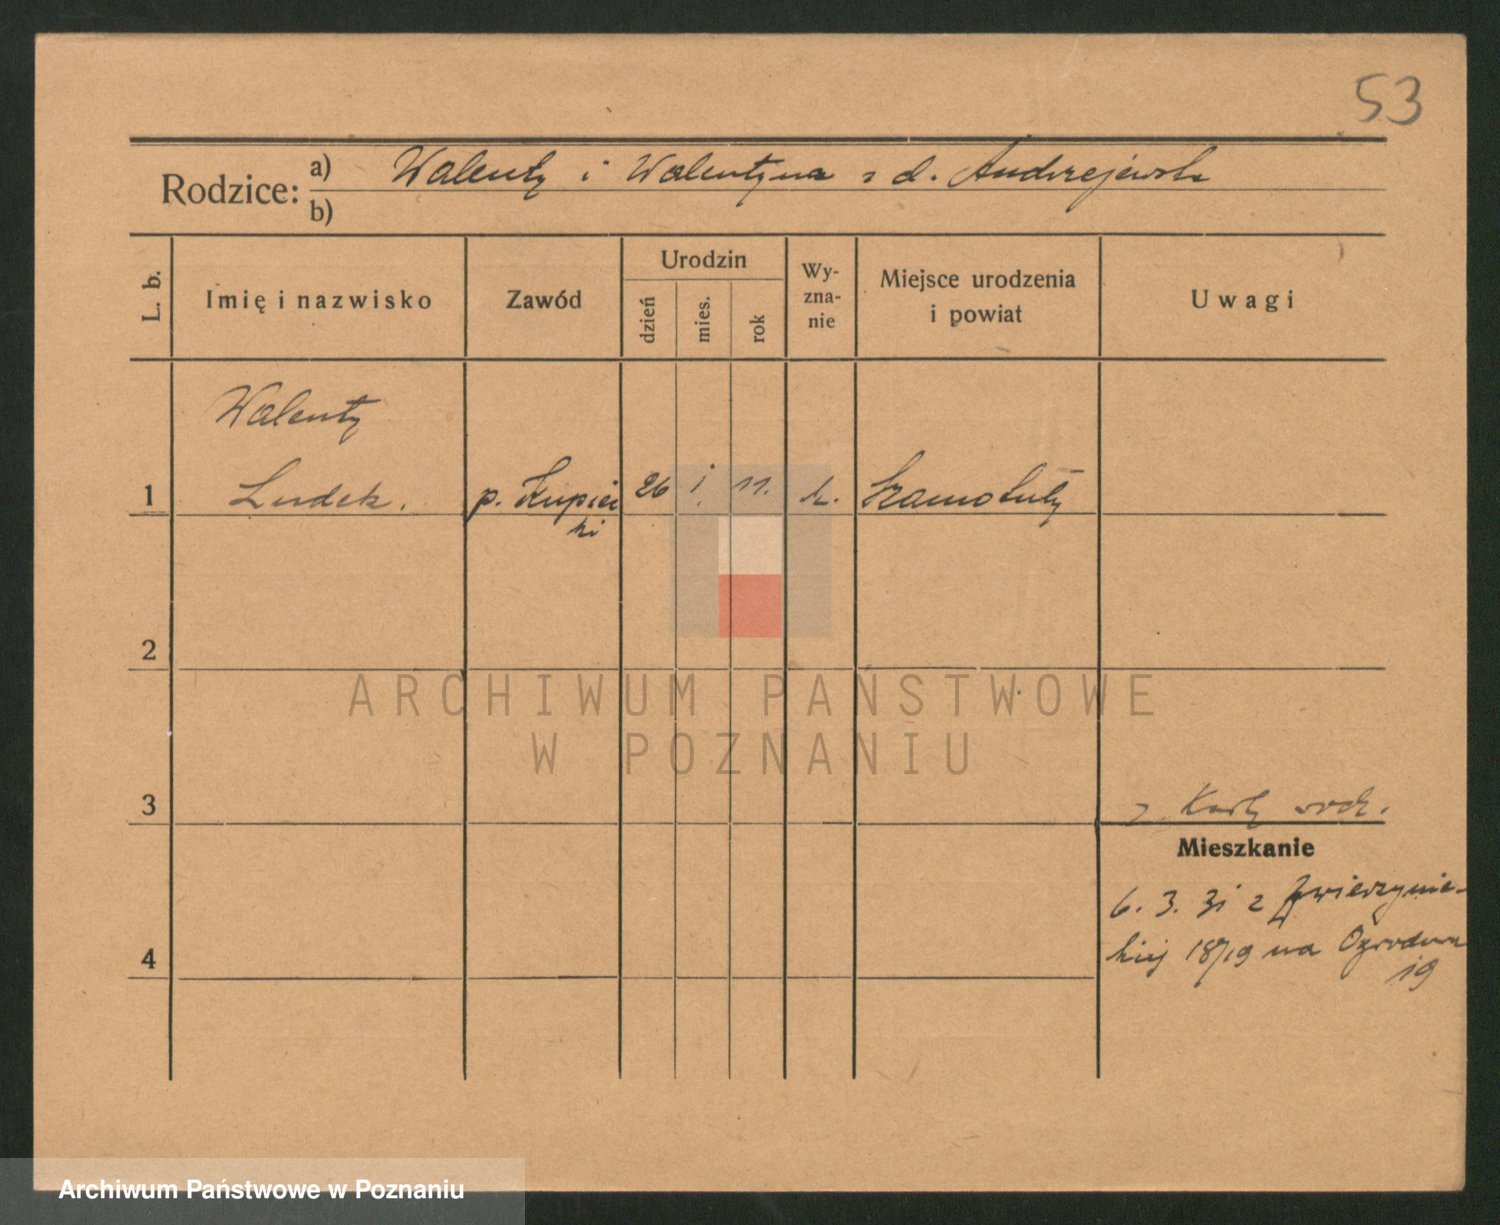 53
Rodzice: a) Walenty i Walentyna z d. Andrzejewska
b)
L. b.
Imię i nazwisko
Zawód
Urodzin
dzień
mies.
rok
Wy-
zna-
nie
Miejsce urodzenia
i powiat
Uwagi
Walenty
1 Ludek. p. Kupiec 26 1. 11. k. Szamotuły
ki
2
ARCHIWUM PAŃSTWOWE
W POZNANIU
3 z Karty rodz.
Mieszkanie
6. 3. 31 z Zwierzynie-
4 kiej 18/19 na Ogrodowa
19
Archiwum Państwowe w Poznaniu